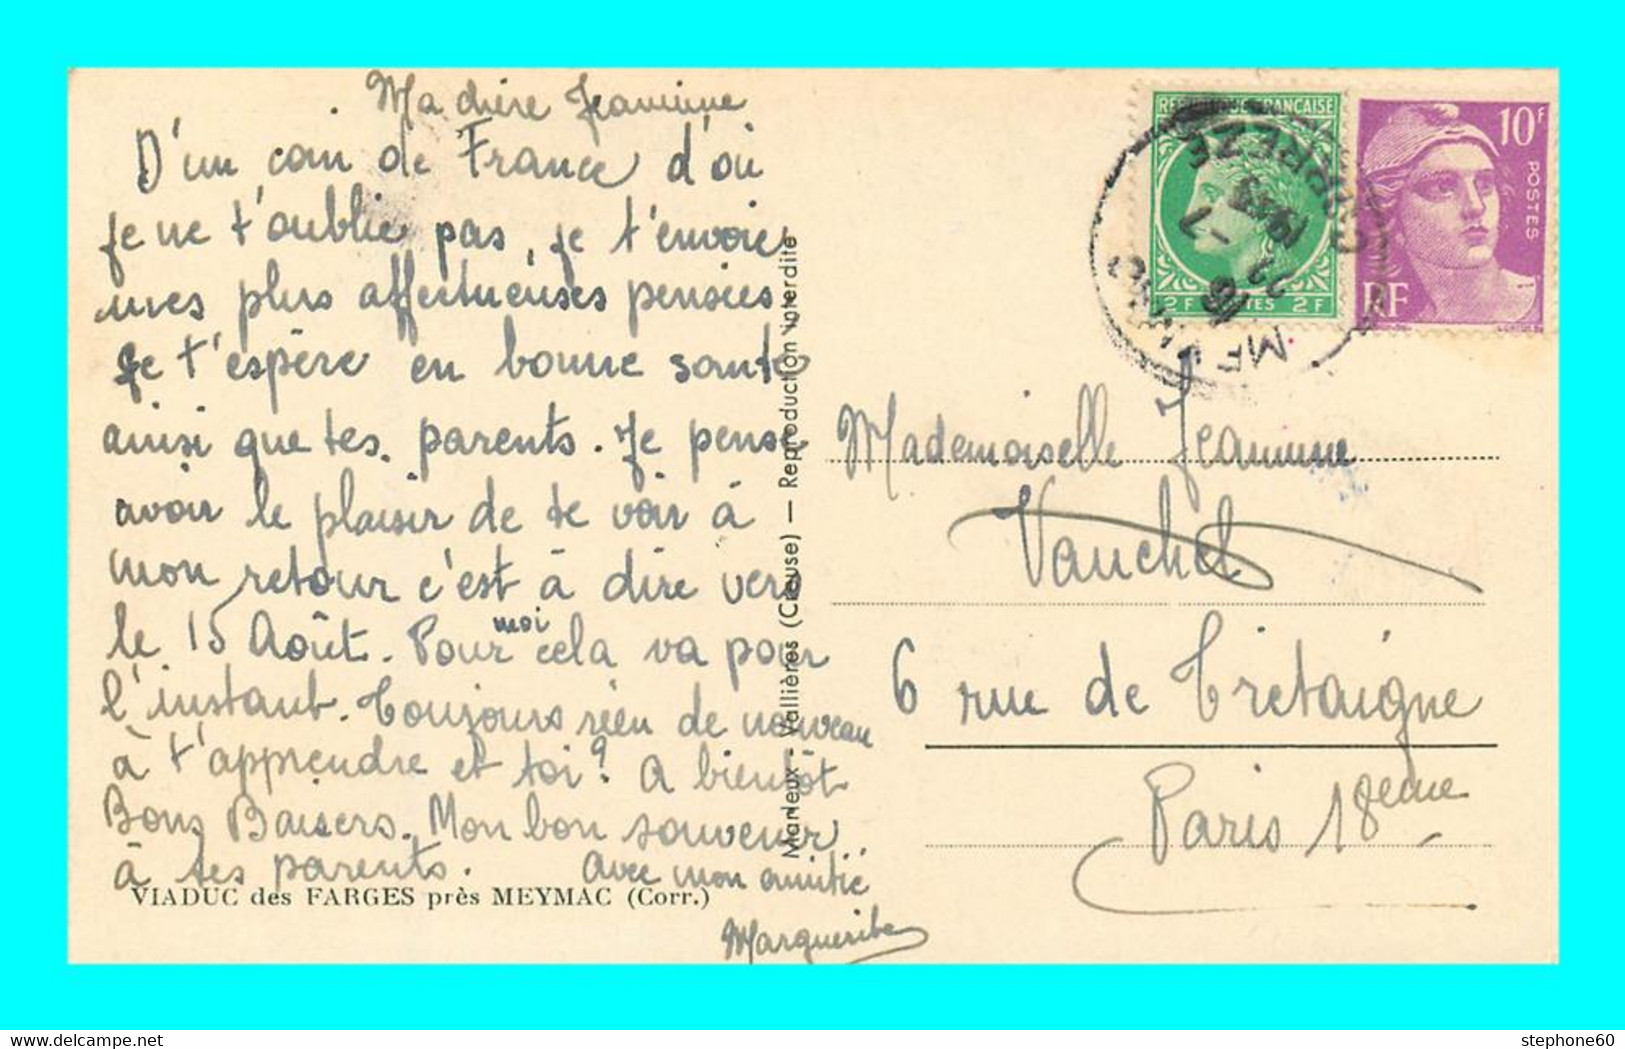 Ma chère Jeannine
D'un coin de France d'où
je ne t'oublie pas, je t'envoie
mes plus affectueuses pensées
Je t'espère en bonne santé
ainsi que tes parents. Je pense
avoir le plaisir de te voir à
mon retour c'est à dire vers
le 15 Août. Pour moi cela va pour
l'instant. Toujours rien de nouveau
à t'apprendre et toi? A bientôt
Bons Baisers. Mon bon souvenir
à tes parents. Avec mon amitié
Marguerite
VIADUC des FARGES près MEYMAC (Corr.)
Marleux - Vallières (Creuse) — Reproduction interdite
REPUBLIQUE FRANÇAISE
2F POSTES 2F
10F
POSTES
RF
CORREZE
16
22 -7
1949
Mademoiselle Jeannine
Vauchel
6 rue de Tretaigne
Paris 18eme
stephone60